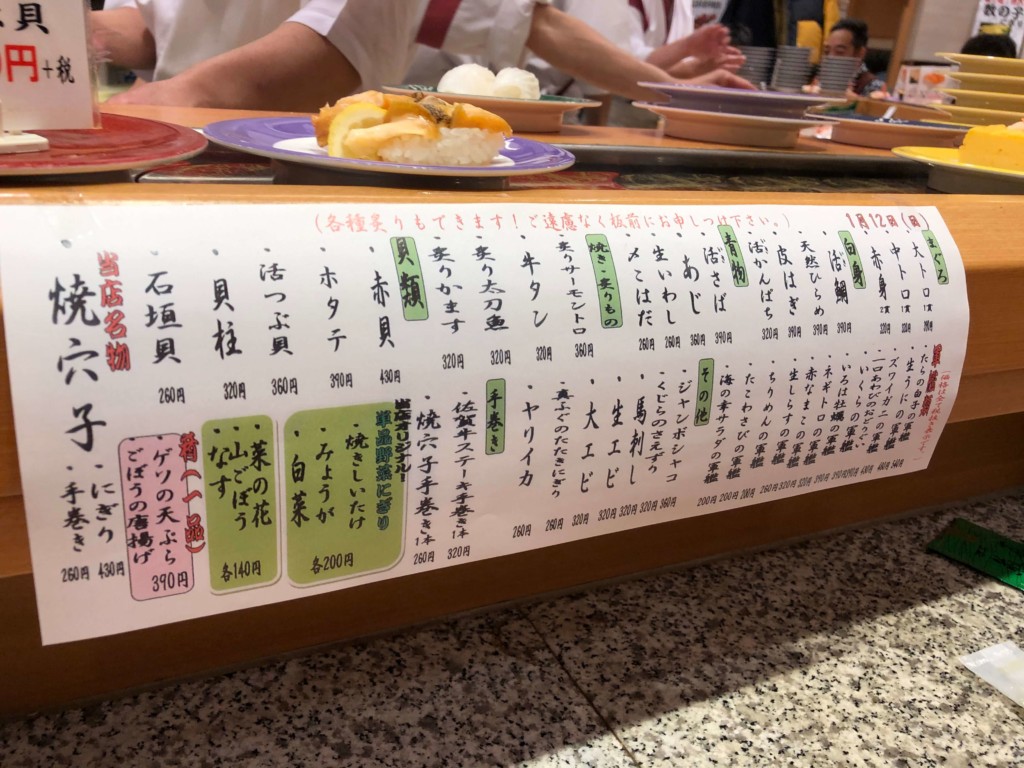 貝
0円+税
数の子
(各種炙りもできます!ご遠慮なく板前にお申しつけ下さい。)
1月12日(日)
まぐろ
・大トロ 1貫
・中トロ 1貫 320円
・赤身 2貫 320円
白身
・活〆鯛 390円
・天然ひらめ 390円
・皮はぎ 390円
・活〆かんぱち 320円
青物
・活〆さば 390円
・あじ 360円
・生いわし 260円
・〆こはだ 260円
焼き・炙りもの
・炙りサーモントロ 360円
・牛タン 320円
・炙り太刀魚 320円
・炙りかます 320円
貝類
・赤貝 430円
・ホタテ 390円
・活つぶ貝 360円
・貝柱 320円
・石垣貝 260円
当店名物
・焼穴子
・にぎり 430円
・手巻き 260円
軍艦類
・たらの白子の軍艦 540円
・生うにの軍艦 480円
・ズワイガニの軍艦 400円
・一口あわびのおどりぐい
・いくらの軍艦 390円
・いろは牡蠣の軍艦 390円
・ネギトロの軍艦 390円
・赤なまこの軍艦 320円
・生しらすの軍艦 320円
・ちりめんの軍艦 260円
・たこわさびの軍艦 200円
・海の幸サラダの軍艦 200円
その他
・ジャンボシャコ 360円
・くじらのさえずり 320円
・馬刺し 320円
・生エビ 320円
・大エビ 320円
・真ふぐのたたきにぎり 260円
・ヤリイカ 260円
手巻き
・佐賀牛ステーキ手巻き1本 320円
・焼穴子手巻き1本 260円
当店オリジナル!
単品野菜にぎり
・焼きしいたけ
・みょうが
・白菜
各200円
・菜の花
・山ごぼう
・なす
各140円
特(一品)
・ゲソの天ぷら
・ごぼうの唐揚げ
390円